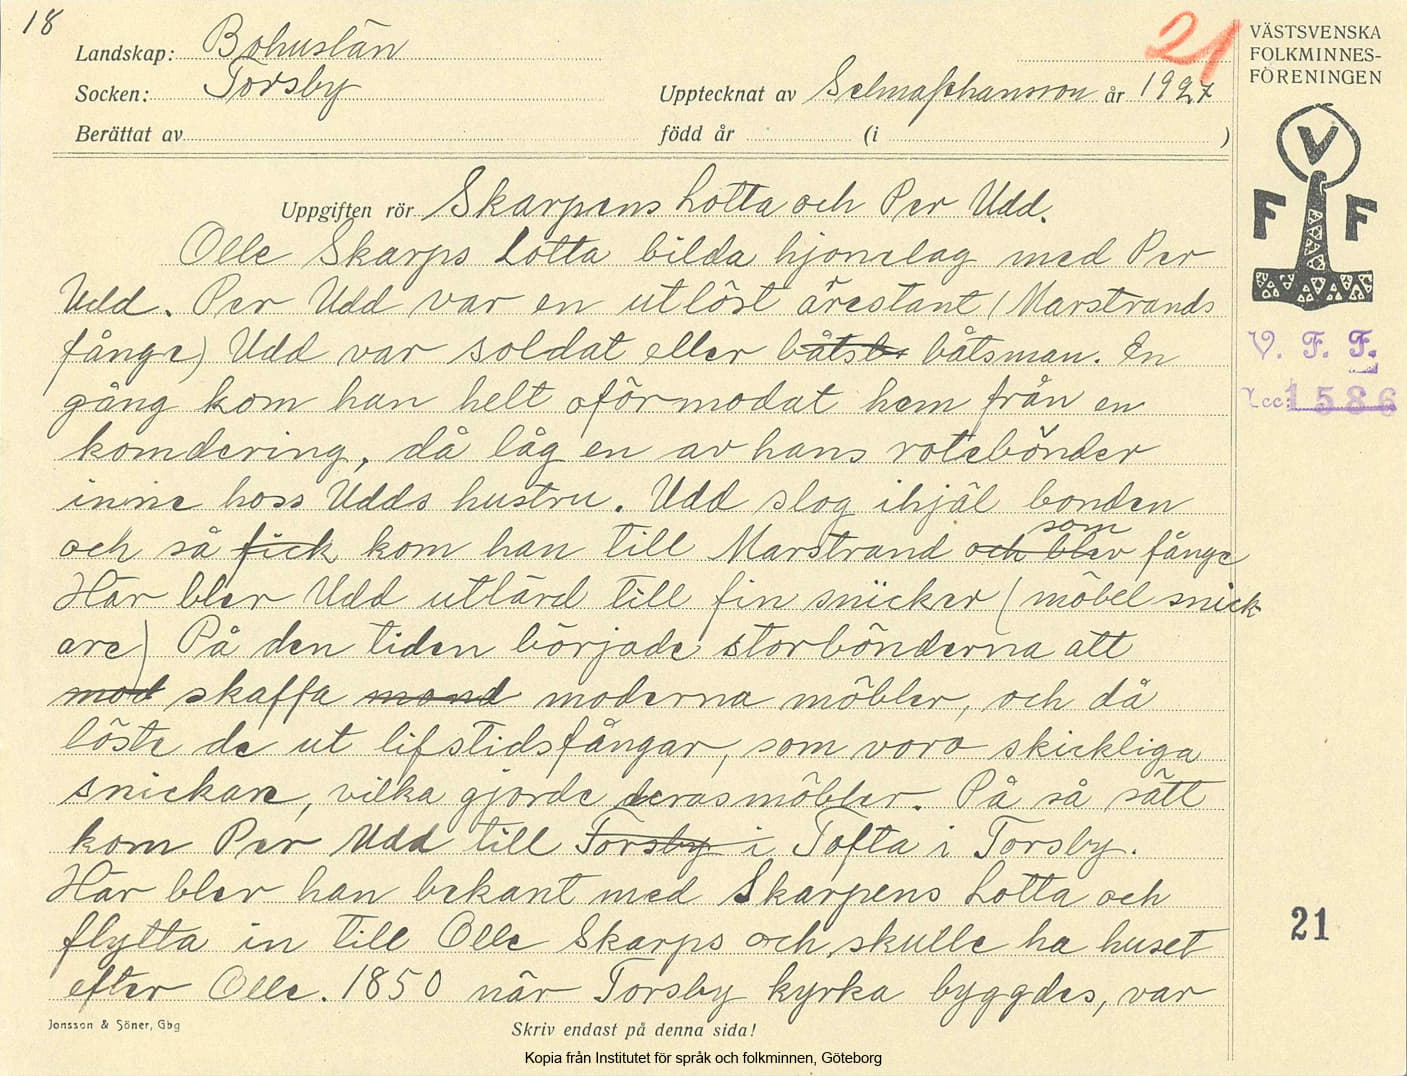 18
Landskap: Bohuslän
21
VÄSTSVENSKA
FOLKMINNES-
FÖRENINGEN
Socken: Torsby
Upptecknat av Selma Johansson år 1927
Berättat av
född år (i )
V
F F
Uppgiften rör Skarpens Lotta och Per Udd.
Olle Skarps Lotta bilda hjonelag med Per
Udd. Per Udd var en utlöst årestant (Marstrands
fånge) Udd var soldat eller båtsb. båtsman. En
V. F. F.
gång kom han helt oförmodat hem från en
Acc: 1586
komdering, då låg en av hans rotebönder
inne hoss Udds hustru. Udd slog ihjäl bonden
och så fick kom han till Marstrand och blev som fånge
Här blev Udd utlärd till fin snicker (möbel snick
are) På den tiden började storbönderna att
mod skaffa mond moderna möbler, och då
löste de ut lifstidsfångar, som voro skickliga
snickare, vilka gjorde deras möbler. På så sätt
kom Per Udd till Torsby i Tofta i Torsby.
Här blev han bekant med Skarpens Lotta och
21
flytta in till Olle Skarps och skulle ha huset
efter Olle. 1850 när Torsby kyrka byggdes, var
Jonsson & Söner, Gbg
Skriv endast på denna sida!
Kopia från Institutet för språk och folkminnen, Göteborg